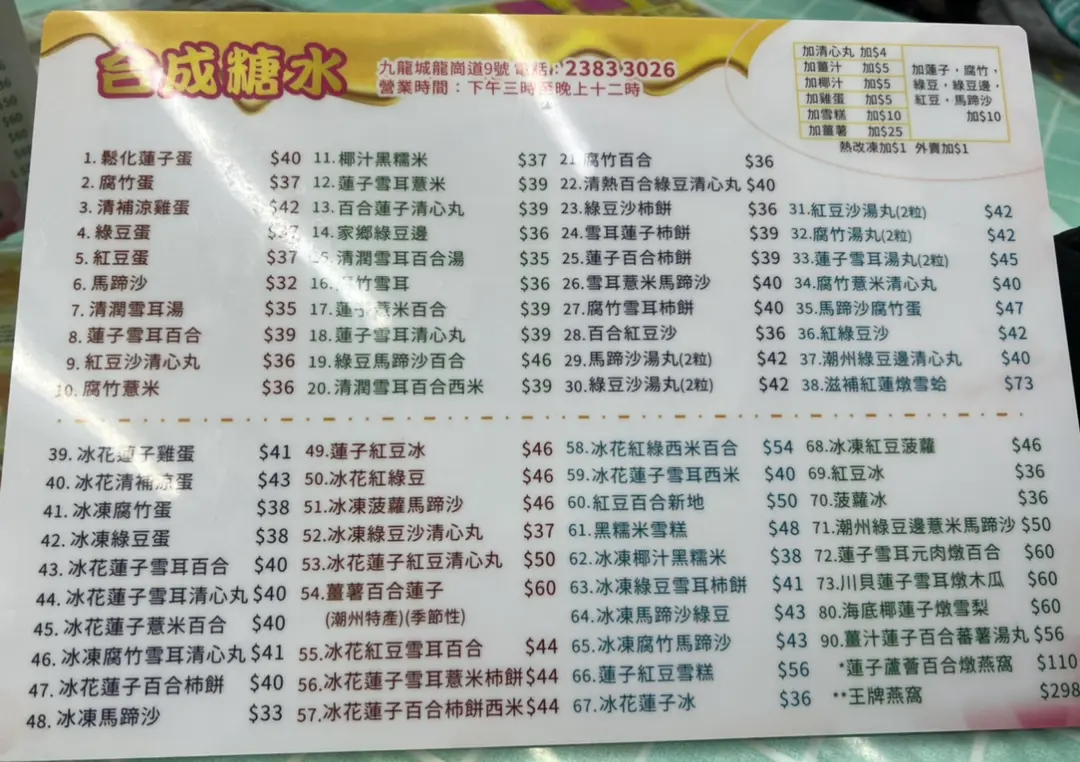 台成糖水
九龍城龍崗道9號 電話:2383 3026
營業時間:下午三時至晚上十二時
加清心丸 加$4
加薑汁 加$5
加椰汁 加$5
加雞蛋 加$5
加雪糕 加$10
加薑薯 加$25
加蓮子,腐竹,
綠豆,綠豆邊,
紅豆,馬蹄沙
加$10
熱改凍加$1 外賣加$1
1.鬆化蓮子蛋 $40
2.腐竹蛋 $37
3.清補涼雞蛋 $42
4.綠豆蛋 $37
5.紅豆蛋 $37
6.馬蹄沙 $32
7.清潤雪耳湯 $35
8.蓮子雪耳百合 $39
9.紅豆沙清心丸 $36
10.腐竹薏米 $36
11.椰汁黑糯米 $37
12.蓮子雪耳薏米 $39
13.百合蓮子清心丸 $39
14.家鄉綠豆邊 $36
15.清潤雪耳百合湯 $35
16.腐竹雪耳 $36
17.蓮子薏米百合 $39
18.蓮子雪耳清心丸 $39
19.綠豆馬蹄沙百合 $46
20.清潤雪耳百合西米 $39
21.腐竹百合 $36
22.清熱百合綠豆清心丸 $40
23.綠豆沙柿餅 $36
24.雪耳蓮子柿餅 $39
25.蓮子百合柿餅 $39
26.雪耳薏米馬蹄沙 $40
27.腐竹雪耳柿餅 $40
28.百合紅豆沙 $36
29.馬蹄沙湯丸(2粒) $42
30.綠豆沙湯丸(2粒) $42
31.紅豆沙湯丸(2粒) $42
32.腐竹湯丸(2粒) $42
33.蓮子雪耳湯丸(2粒) $45
34.腐竹薏米清心丸 $40
35.馬蹄沙腐竹蛋 $47
36.紅綠豆沙 $42
37.潮州綠豆邊清心丸 $40
38.滋補紅蓮燉雪蛤 $73
39.冰花蓮子雞蛋 $41
40.冰花清補涼蛋 $43
41.冰凍腐竹蛋 $38
42.冰凍綠豆蛋 $38
43.冰花蓮子雪耳百合 $40
44.冰花蓮子雪耳清心丸 $40
45.冰花蓮子薏米百合 $40
46.冰凍腐竹雪耳清心丸 $41
47.冰花蓮子百合柿餅 $40
48.冰凍馬蹄沙 $33
49.蓮子紅豆冰 $46
50.冰花紅綠豆 $46
51.冰凍菠蘿馬蹄沙 $46
52.冰凍綠豆沙清心丸 $37
53.冰花蓮子紅豆清心丸 $50
54.薑薯百合蓮子 $60
(潮州特產)(季節性)
55.冰花紅豆雪耳百合 $44
56.冰花蓮子雪耳薏米柿餅 $44
57.冰花蓮子百合柿餅西米 $44
58.冰花紅綠西米百合 $54
59.冰花蓮子雪耳西米 $40
60.紅豆百合新地 $50
61.黑糯米雪糕 $48
62.冰凍椰汁黑糯米 $38
63.冰凍綠豆雪耳柿餅 $41
64.冰凍馬蹄沙綠豆 $43
65.冰凍腐竹馬蹄沙 $43
66.蓮子紅豆雪糕 $56
67.冰花蓮子冰 $36
68.冰凍紅豆菠蘿 $46
69.紅豆冰 $36
70.菠蘿冰 $36
71.潮州綠豆邊薏米馬蹄沙 $50
72.蓮子雪耳元肉燉百合 $60
73.川貝蓮子雪耳燉木瓜 $60
80.海底椰蓮子燉雪梨 $60
90.薑汁蓮子百合蕃薯湯丸 $56
*蓮子蘆薈百合燉燕窩 $110
**王牌燕窩 $298